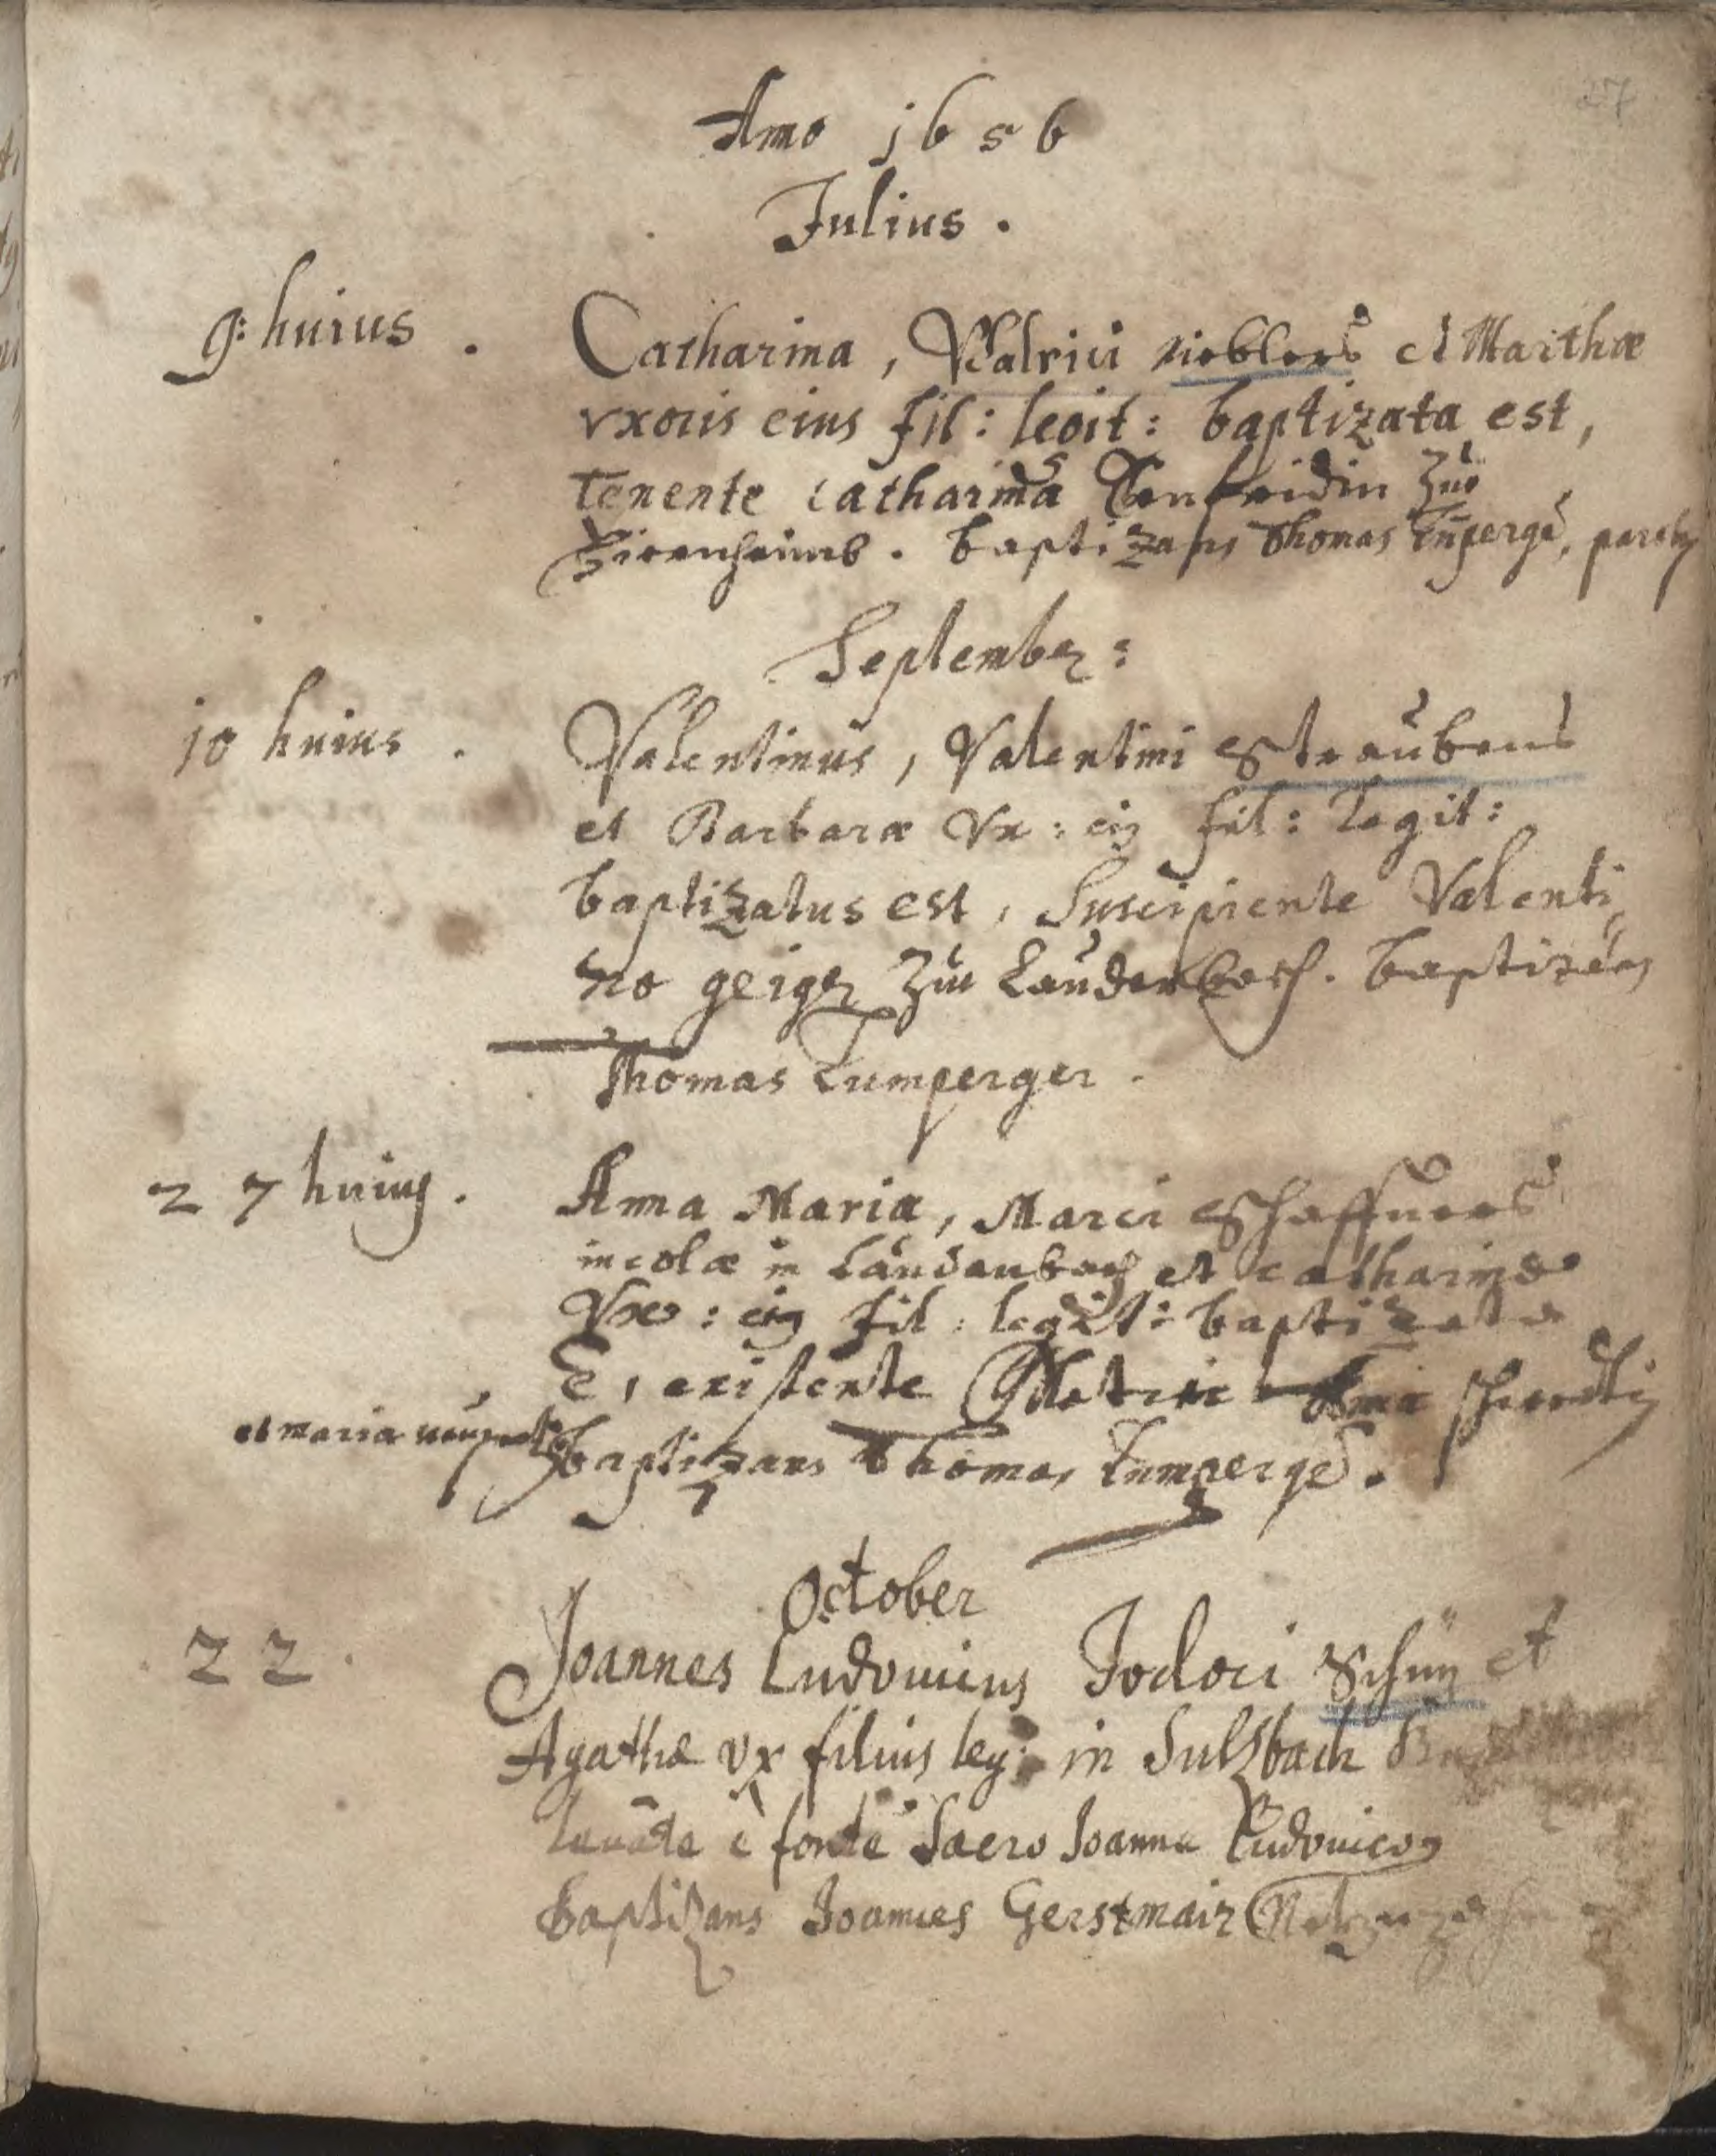 27
Anno 1656
Julius.
9: huius. Catharina, Valrici Nieblers et Marthæ
vxoris eius fil: legit: baptizata est,
Tenente Catharina Senfridin zue
baptizans Thomas Tumperger, paroch
September:
10 huius. Valentinus, Valentini Straubens
et Barbaræ Vx: eiꝰ fil: legit:
baptizatus est, Suscipiente Valenti
no geiger zue Laudenbach. baptizans
Thomas Tumperger.
27 huius. Anna Maria, Marci Schaffners
incolæ in Laudenbach et Catharinæ
Vx: eiꝰ fil: legit: baptizata
E, existente Matrina Anna
et maria
baptizans Thomas Tumperger.
October
22. Joannes Ludouicus Jodoci Schun et
Agathæ vx filius leg: in Sulsbach
leuāte è fonte Sacro Joanne Ludouico
baptizans Joannes Gerstmair